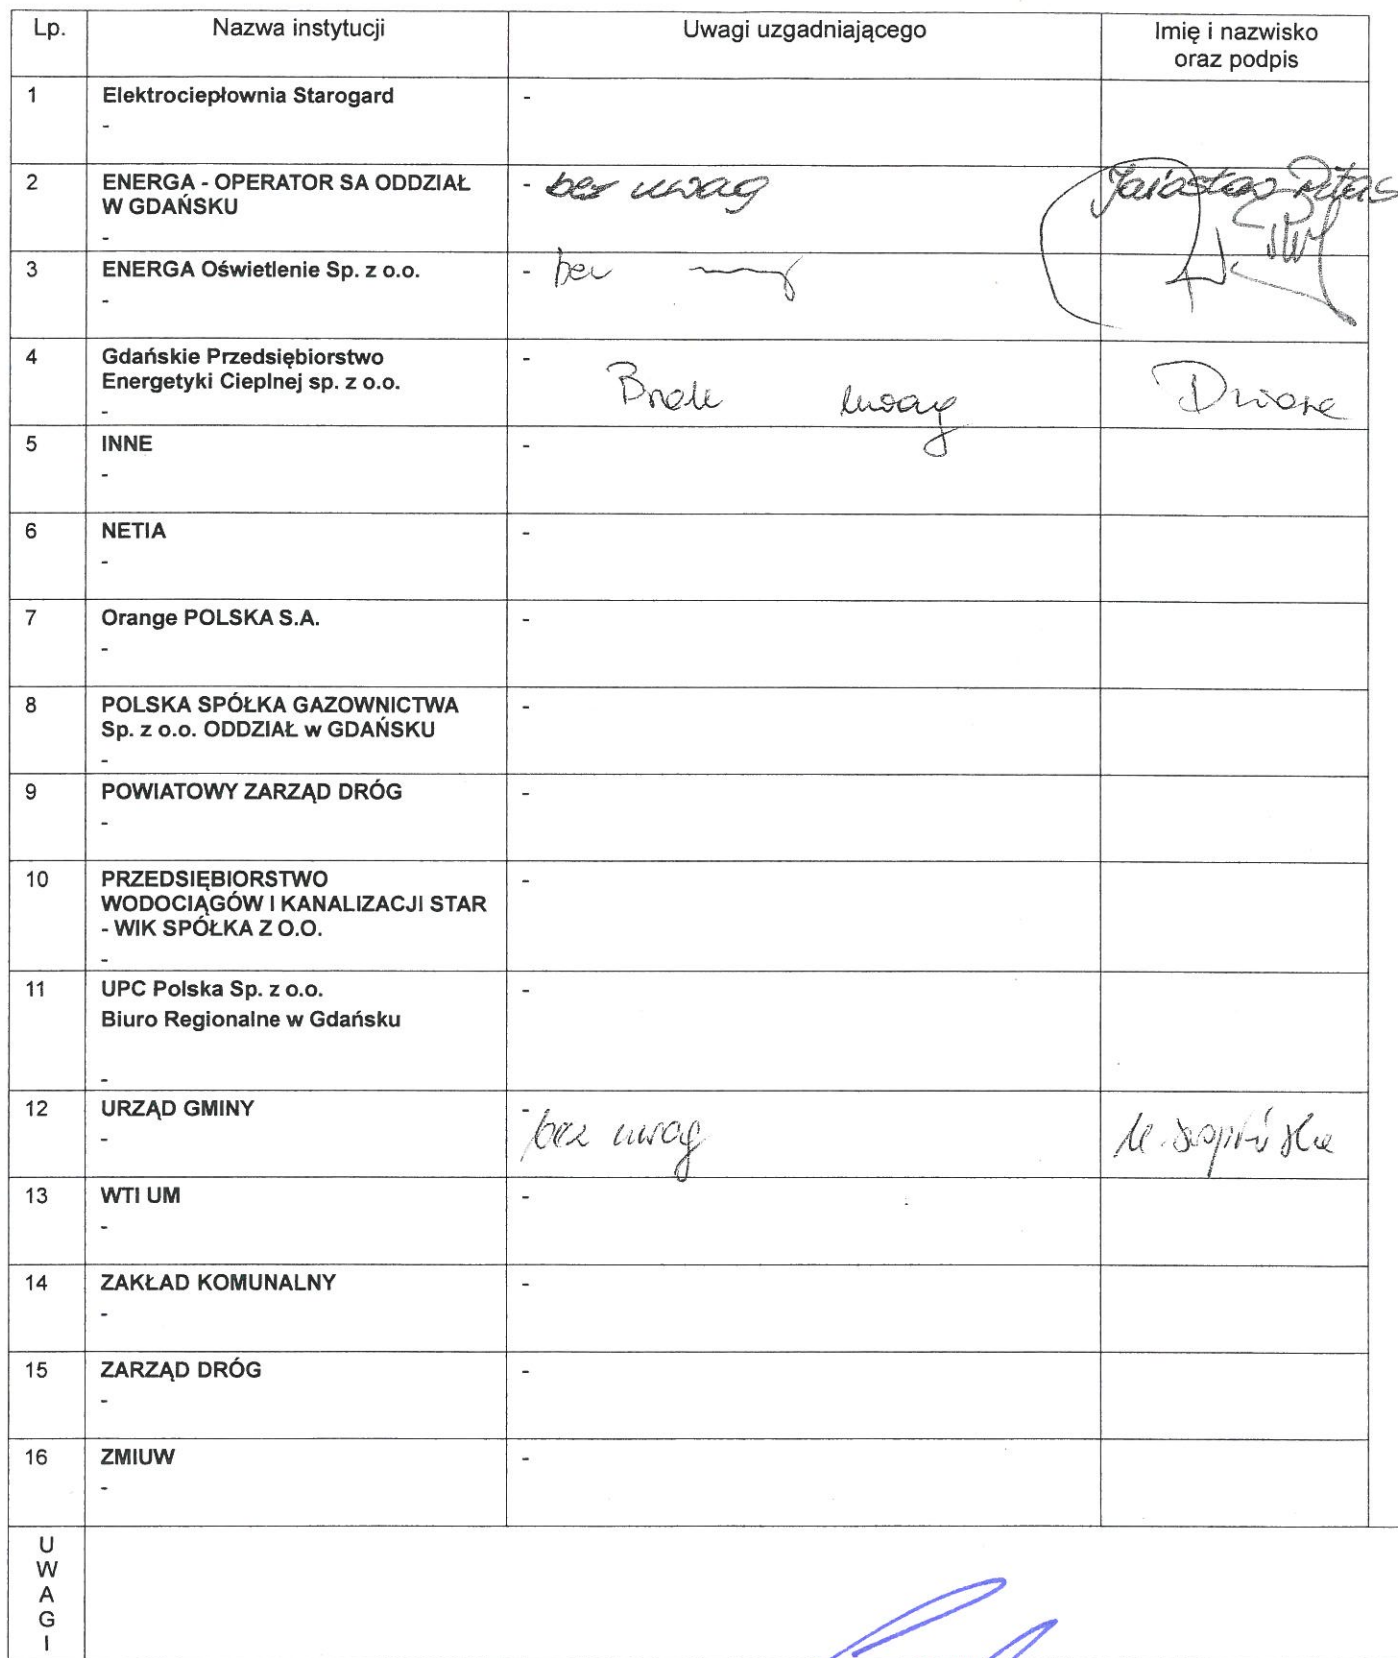 Lp. Nazwa instytucji Uwagi uzgadniającego Imię i nazwisko
oraz podpis
1 Elektrociepłownia Starogard -
-
2 ENERGA - OPERATOR SA ODDZIAŁ - bez uwag
W GDAŃSKU
-
3 ENERGA Oświetlenie Sp. z o.o. - bez uwag
-
4 Gdańskie Przedsiębiorstwo -
Energetyki Cieplnej sp. z o.o. Brak uwag
-
5 INNE -
-
6 NETIA -
-
7 Orange POLSKA S.A. -
-
8 POLSKA SPÓŁKA GAZOWNICTWA -
Sp. z o.o. ODDZIAŁ w GDAŃSKU
-
9 POWIATOWY ZARZĄD DRÓG -
-
10 PRZEDSIĘBIORSTWO -
WODOCIĄGÓW I KANALIZACJI STAR
- WIK SPÓŁKA Z O.O.
-
11 UPC Polska Sp. z o.o. -
Biuro Regionalne w Gdańsku
-
12 URZĄD GMINY - bez uwag
-
13 WTI UM -
-
14 ZAKŁAD KOMUNALNY -
-
15 ZARZĄD DRÓG -
-
16 ZMIUW -
-
U
W
A
G
I